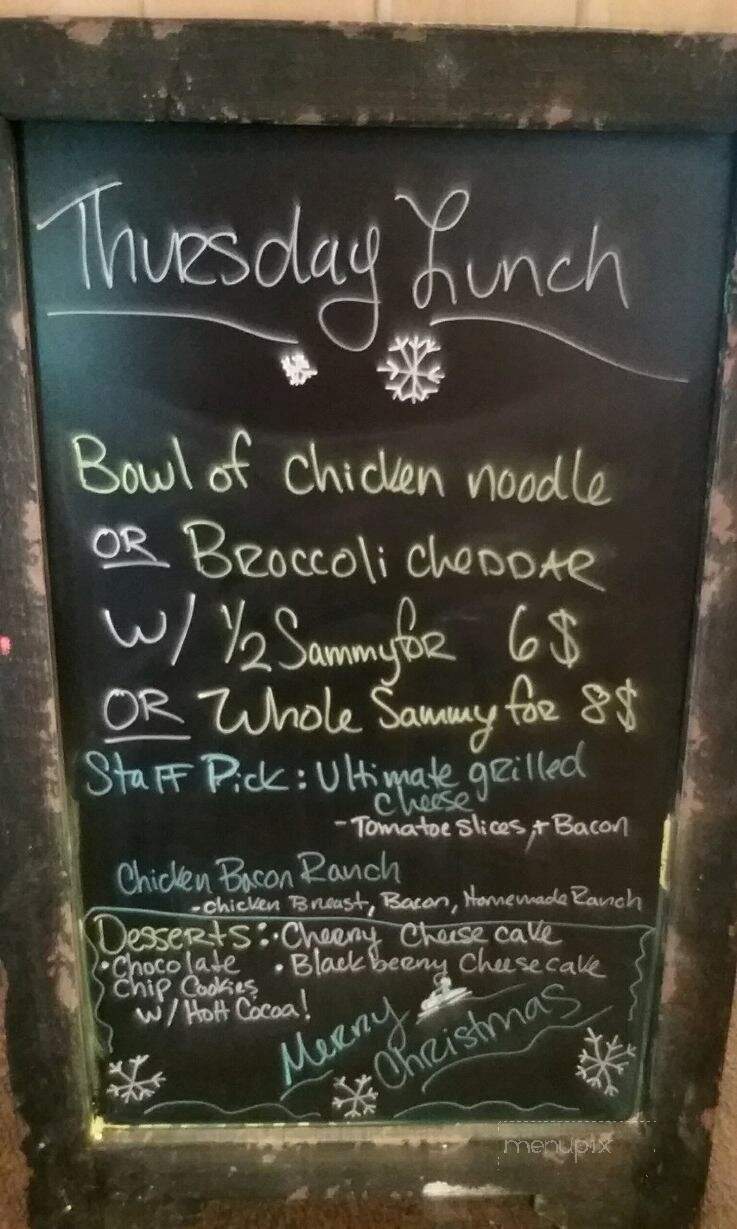 Thursday Lunch
Bowl of Chicken noodle
OR Broccoli cheDDAR
W/ 1/2 Sammy for 6$
OR Whole Sammy for 8$
Staff Pick: Ultimate grilled
cheese
- Tomatoe slices, + Bacon
Chicken Bacon Ranch
- chicken Breast, Bacon, Homemade Ranch
Desserts: • Cherry Cheese cake
• Chocolate • Blackberry Cheesecake
Chip Cookies
W/ Hott Cocoa!
Merry
Christmas
menupix